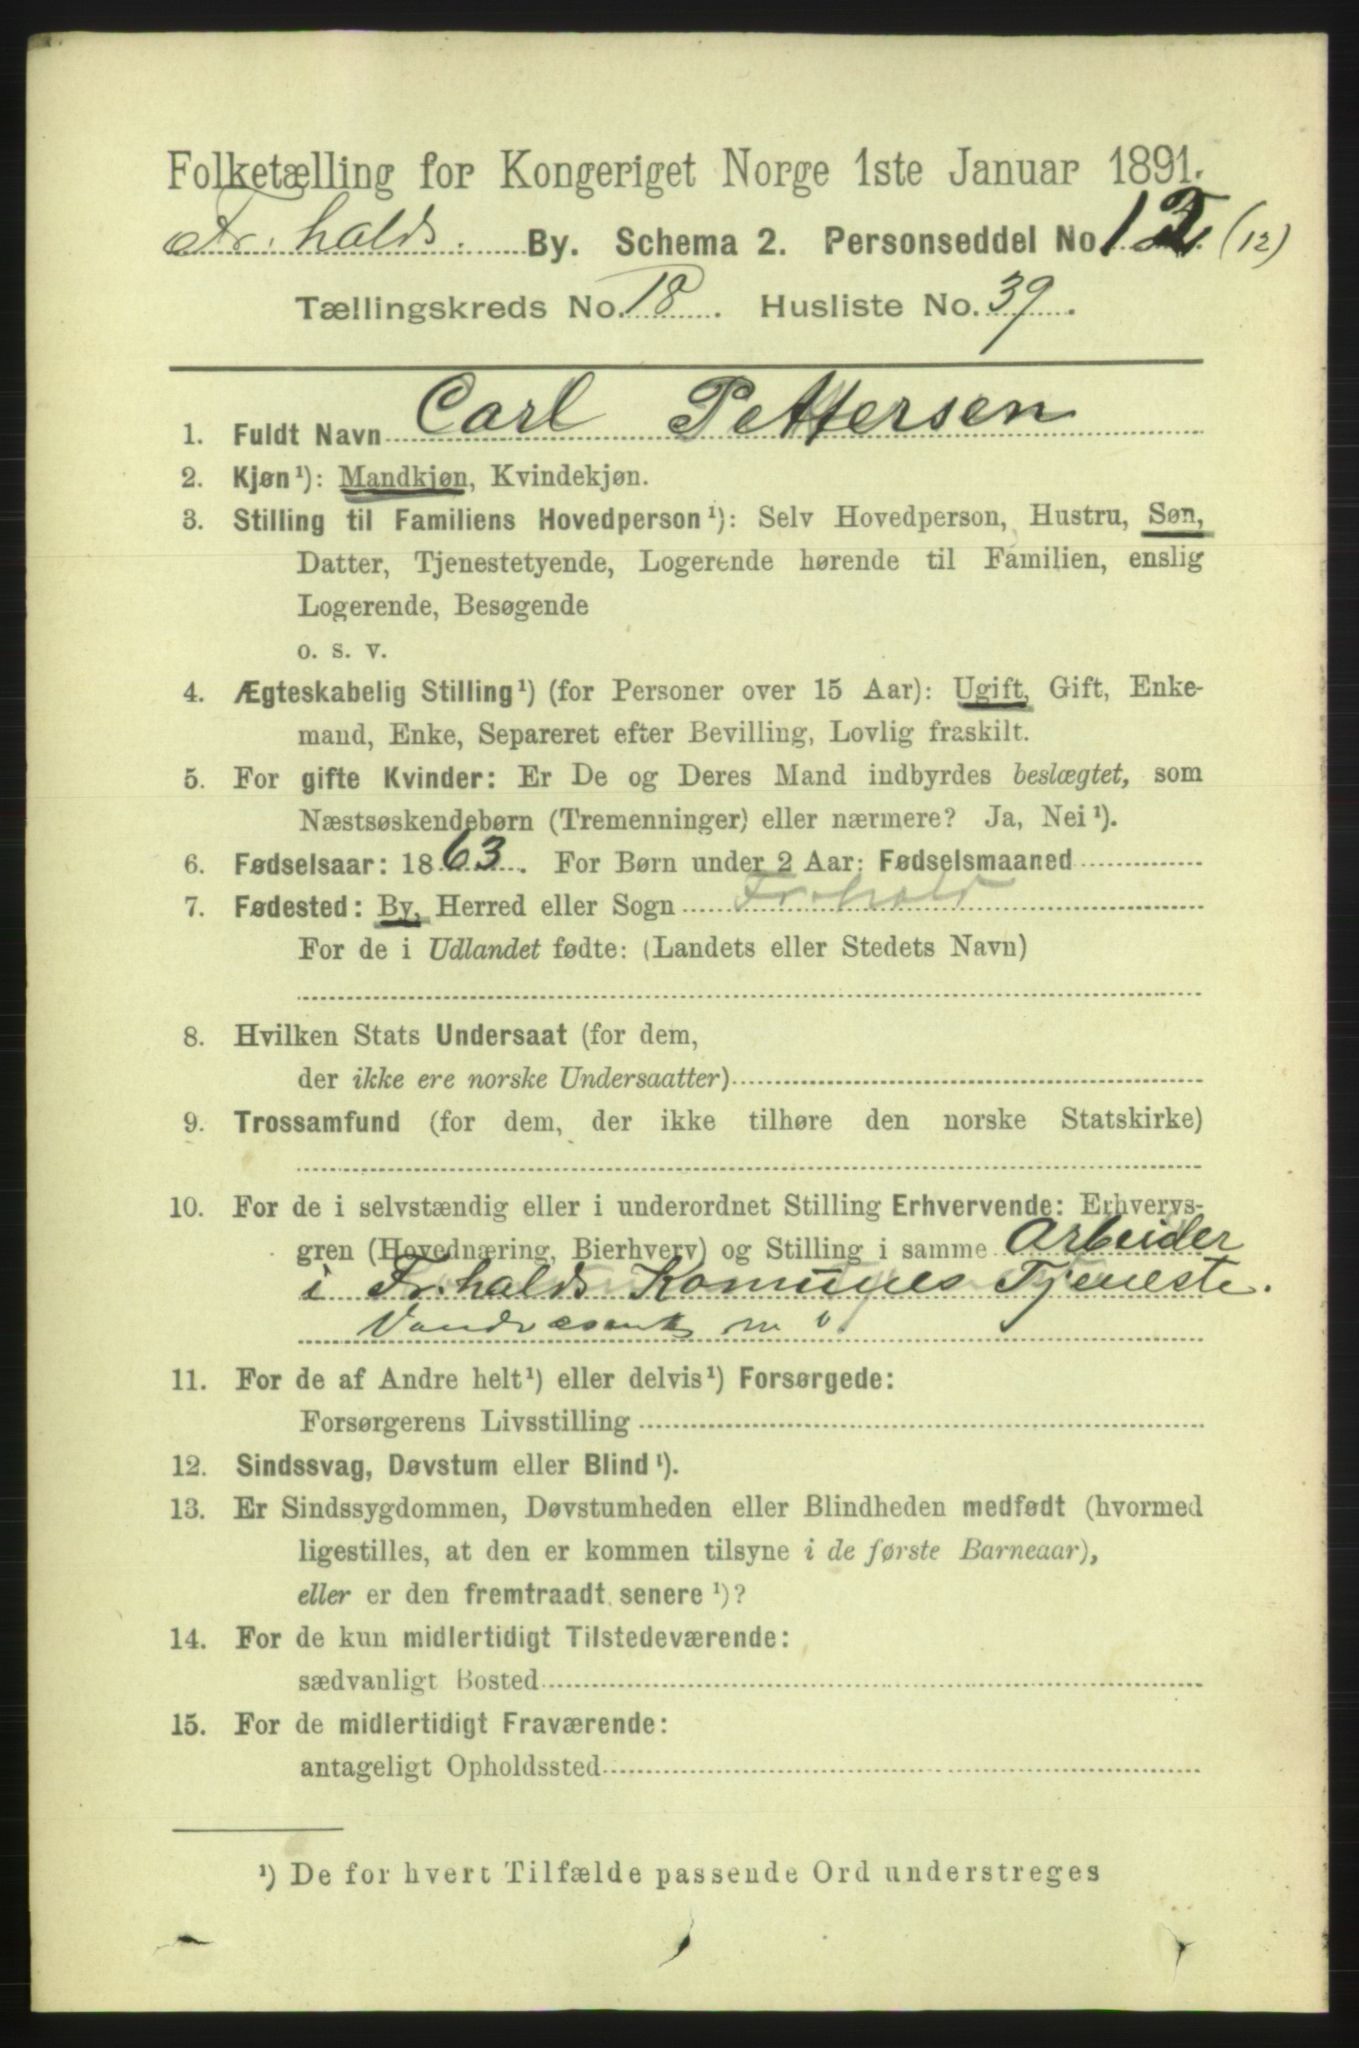 Folketælling for Kongeriget Norge 1ste Januar 1891.
Fr.halds. By. Schema 2. Personseddel No. 12 (12)
Tællingskreds No. 18. Husliste No. 39.
1. Fuldt Navn Carl Pettersen
2. Kjøn¹): Mandkjøn, Kvindekjøn.
3. Stilling til Familiens Hovedperson¹): Selv Hovedperson, Hustru, Søn,
Datter, Tjenestetyende, Logerende hørende til Familien, enslig
Logerende, Besøgende
o. s. v.
4. Ægteskabelig Stilling¹) (for Personer over 15 Aar): Ugift, Gift, Enke-
mand, Enke, Separeret efter Bevilling, Lovlig fraskilt.
5. For gifte Kvinder: Er De og Deres Mand indbyrdes beslægtet, som
Næstsøskendebørn (Tremenninger) eller nærmere? Ja, Nei¹).
6. Fødselsaar: 1863. For Børn under 2 Aar: Fødselsmaaned
7. Fødested: By, Herred eller Sogn Fr.hald
For de i Udlandet fødte: (Landets eller Stedets Navn)
8. Hvilken Stats Undersaat (for dem,
der ikke ere norske Undersaatter)
9. Trossamfund (for dem, der ikke tilhøre den norske Statskirke)
10. For de i selvstændig eller i underordnet Stilling Erhvervende: Erhvervs-
gren (Hovednæring, Bierhverv) og Stilling i samme Arbeider
i Fr.halds Komunes Tjeneste.
11. For de af Andre helt¹) eller delvis¹) Forsørgede:
Forsørgerens Livsstilling
12. Sindssvag, Døvstum eller Blind¹).
13. Er Sindssygdommen, Døvstumheden eller Blindheden medfødt (hvormed
ligestilles, at den er kommen tilsyne i de første Barneaar),
eller er den fremtraadt senere¹)?
14. For de kun midlertidigt Tilstedeværende:
sædvanligt Bosted
15. For de midlertidigt Fraværende:
antageligt Opholdssted
¹) De for hvert Tilfælde passende Ord understreges